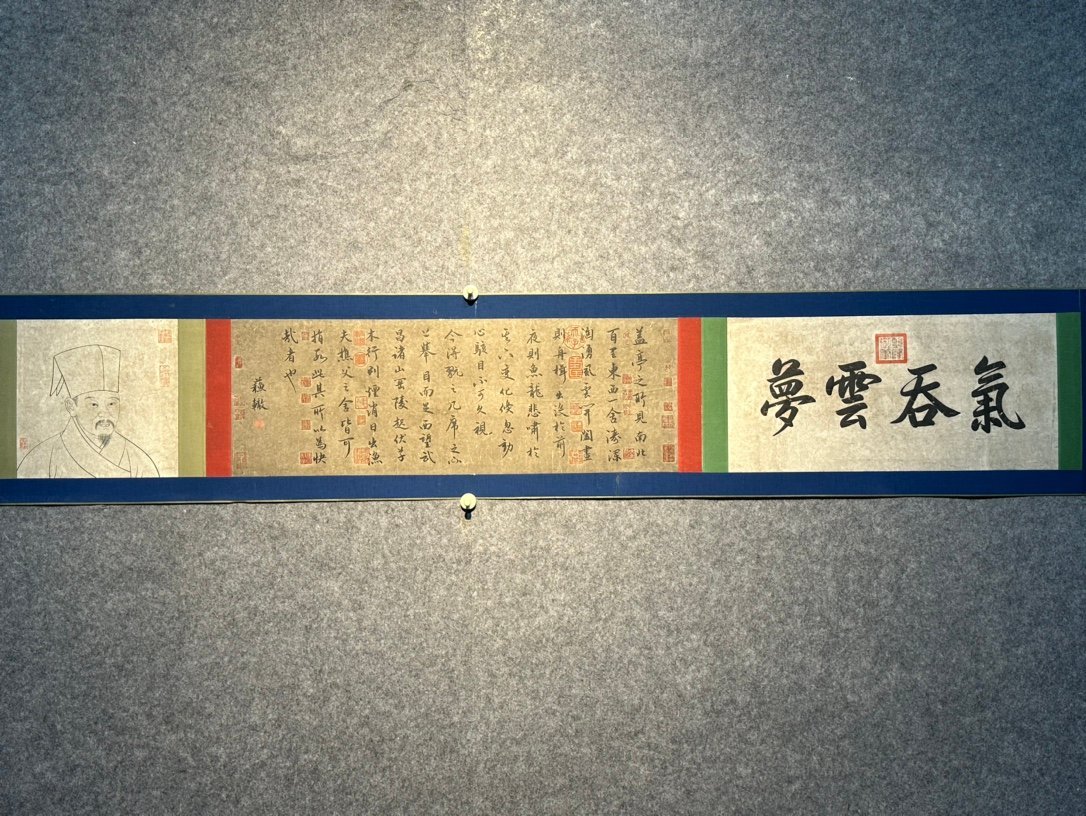 氣吞雲夢
蓋亭之所見南北
百里東西一舍濤
洶湧風雲開闔晝
則舟楫出沒於前
夜則魚龍悲嘯於
其下變化倏忽動
心駭目不可久視
今得翫之几席之
上舉目而足西望武
昌諸山岡陵起伏草
木行列煙消日出漁
夫樵父之舍皆可
指數此其所以為快
哉者也
蘇轍